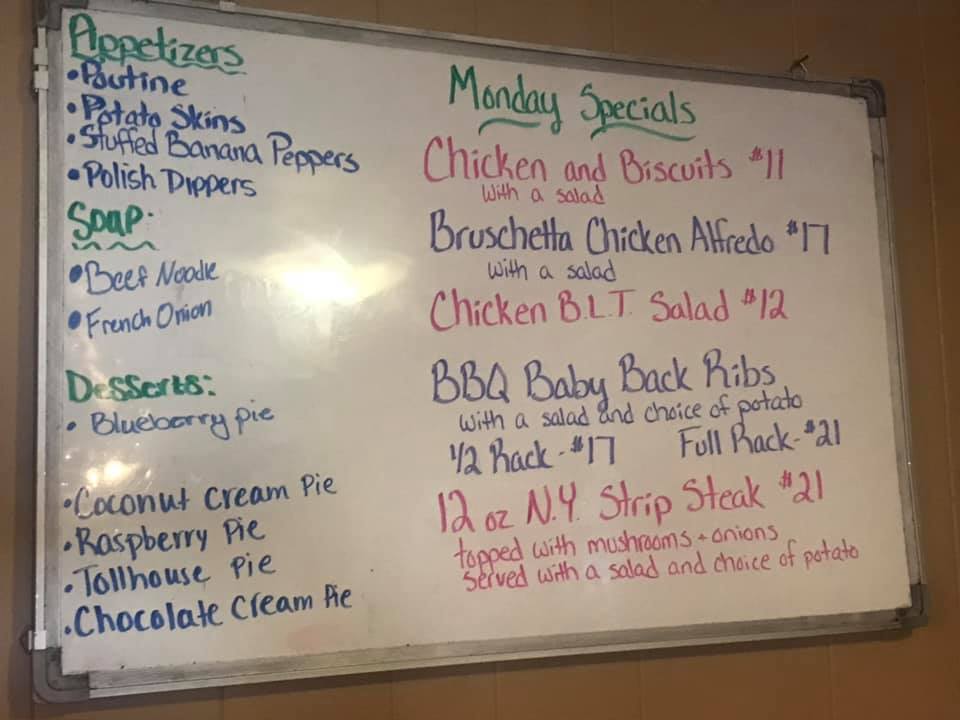 Appetizers
•Poutine
•Potato Skins
•Stuffed Banana Peppers
•Polish Dippers
Soup:
•Beef Noodle
•French Onion
Desserts:
• Blueberry pie
•Coconut Cream Pie
•Raspberry Pie
•Tollhouse Pie
•Chocolate Cream Pie
Monday Specials
Chicken and Biscuits $11
with a salad
Bruschetta Chicken Alfredo $17
with a salad
Chicken B.L.T. Salad $12
BBQ Baby Back Ribs
with a salad and choice of potato
1/2 Rack-$17 Full Rack-$21
12 oz N.Y. Strip Steak $21
topped with mushrooms + onions
served with a salad and choice of potato